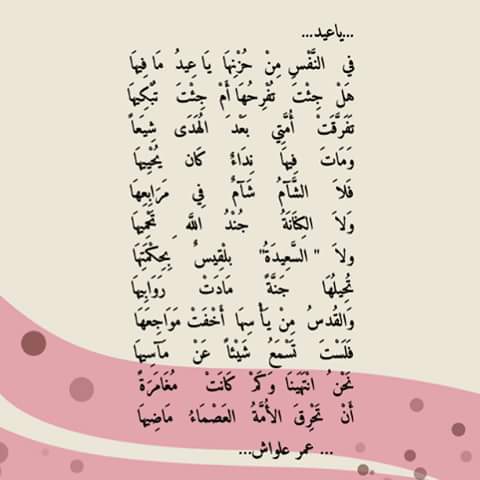 ...ياعيد...
في النَّفْسِ مِنْ حُزْنِهَا يَا عِيدُ مَا فِيهَا
هَلْ جِئْتَ تُفْرِحُهَا أَمْ جِئْتَ تُبْكِيهَا
تَفَرَّقَتْ أُمَّتِي بَعْدَ الْهُدَى شِيَعاً
وَمَاتَ فِيهَا نِدَاءٌ كَان يُحْيِيهَا
فَلاَ الشَّآمُ شَآمٌ فِي مَرَابِعِهَا
وَلاَ الكِنَانَةُ جُنْدُ اللَّهِ تَحْمِيهَا
ولاَ " السَّعِيدَةُ" بلْقِيسٌ بِحِكْمَتِهَا
تُحِيلُهَا جَنَّةً مَادَتْ رَوَابِيهَا
وَالقُدسُ مِنْ يَأْسِهَا أَخْفَتْ مَوَاجِعَهَا
فَلَسْتَ تَسْمَعُ شَيْئاً عَنْ مَآسِيهَا
نَحْنُ انْتَهَيْنَا وَكَمْ كَانَتْ مُغَامَرَةً
أَنْ تَحْرِقَ الأُمَّةُ العَصْمَاءُ مَاضِيهَا
... عمر علواش...